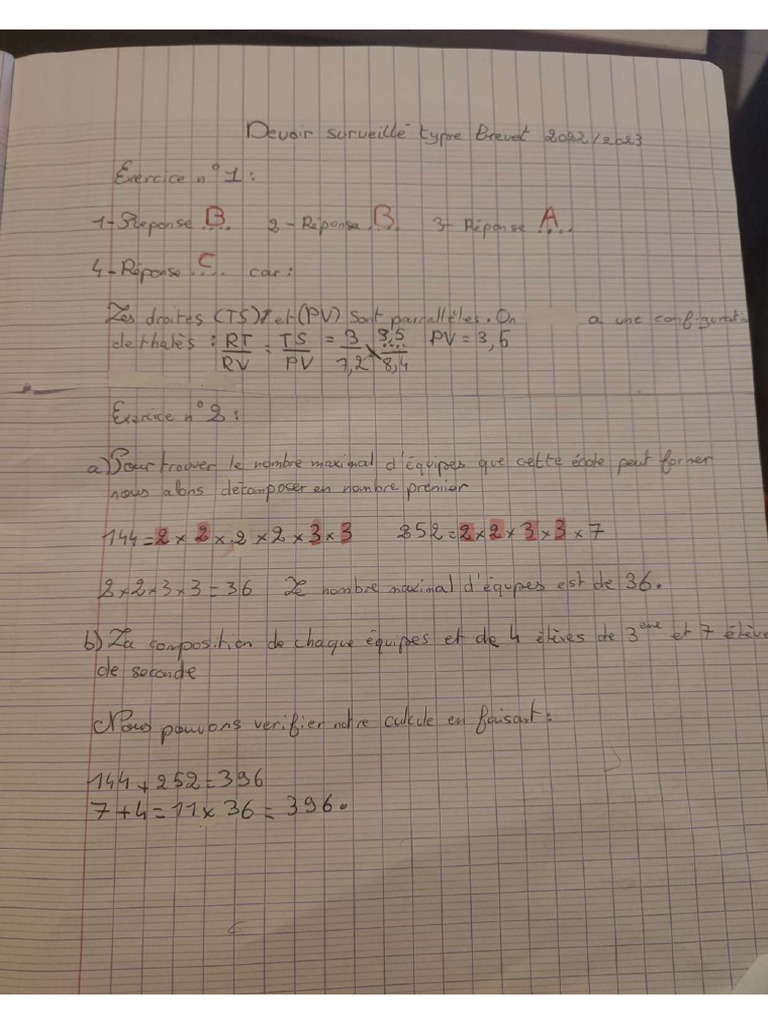 Devoir surveillé type Brevet 2022/2023
Exercice n° 1 :
1-Reponse B. 2-Réponse B. 3-Réponse A...
4-Réponse C... car :
Les droites (TS) et (PV) sont parrallèles. On a une configurati
de thalès : RT/RV = TS/PV = 3/7,2 3,5/8,4 PV = 3,5
Exercice n° 2 :
a) Pour trouver le nombre maximal d'équipes que cette école peut former
nous allons décomposer en nombre premier
144 = 2 x 2 x 2 x 2 x 3 x 3 252 = 2 x 2 x 3 x 3 x 7
2 x 2 x 3 x 3 = 36 Le nombre maximal d'équipes est de 36.
b) La composition de chaque équipes et de 4 élèves de 3ème et 7 élève
de seconde
Nous pouvons verifier notre calcule en faisant :
144 + 252 = 396
7 + 4 = 11 x 36 = 396.